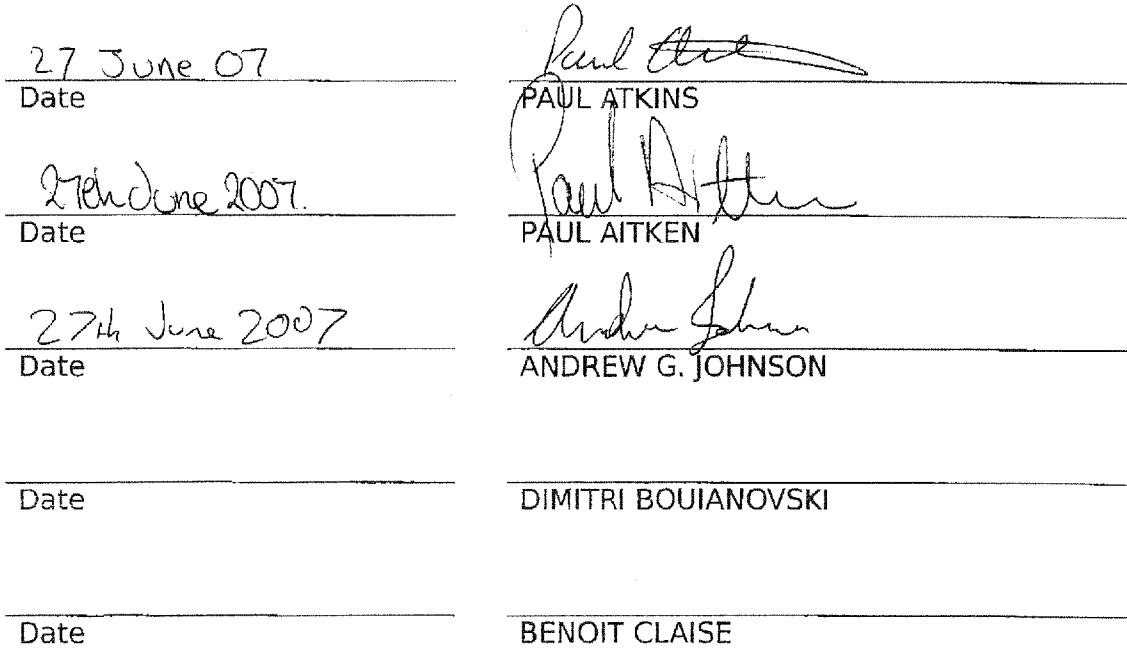 27 June 07 Paul Atkins
Date PAUL ATKINS
27th June 2007. Paul Aitken
Date PAUL AITKEN
27th June 2007 Andrew Johnson
Date ANDREW G. JOHNSON
Date DIMITRI BOUIANOVSKI
Date BENOIT CLAISE